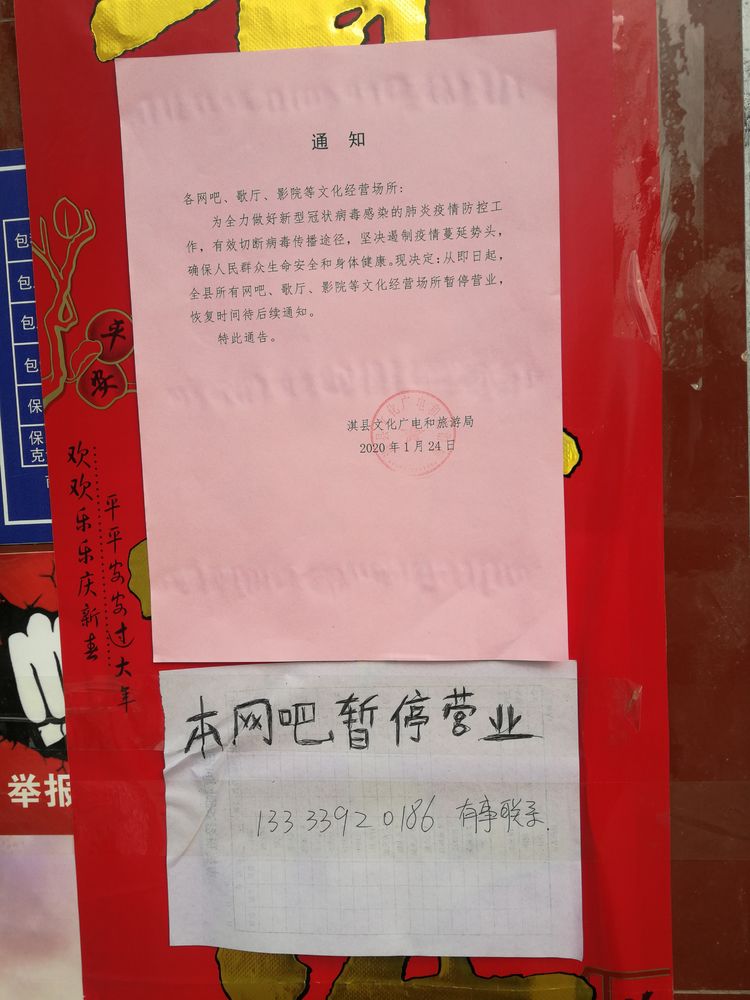 通 知
各网吧、歌厅、影院等文化经营场所:
为全力做好新型冠状病毒感染的肺炎疫情防控工
作，有效切断病毒传播途径，坚决遏制疫情蔓延势头，
确保人民群众生命安全和身体健康。现决定:从即日起，
全县所有网吧、歌厅、影院等文化经营场所暂停营业，
恢复时间待后续通知。
特此通告。
淇县文化广电和旅游局
2020年1月24日
本网吧暂停营业
13333920186 有事联系.
平安
平平安安过大年
欢欢乐乐庆新春
包
包
包
包
保
保
克
举报